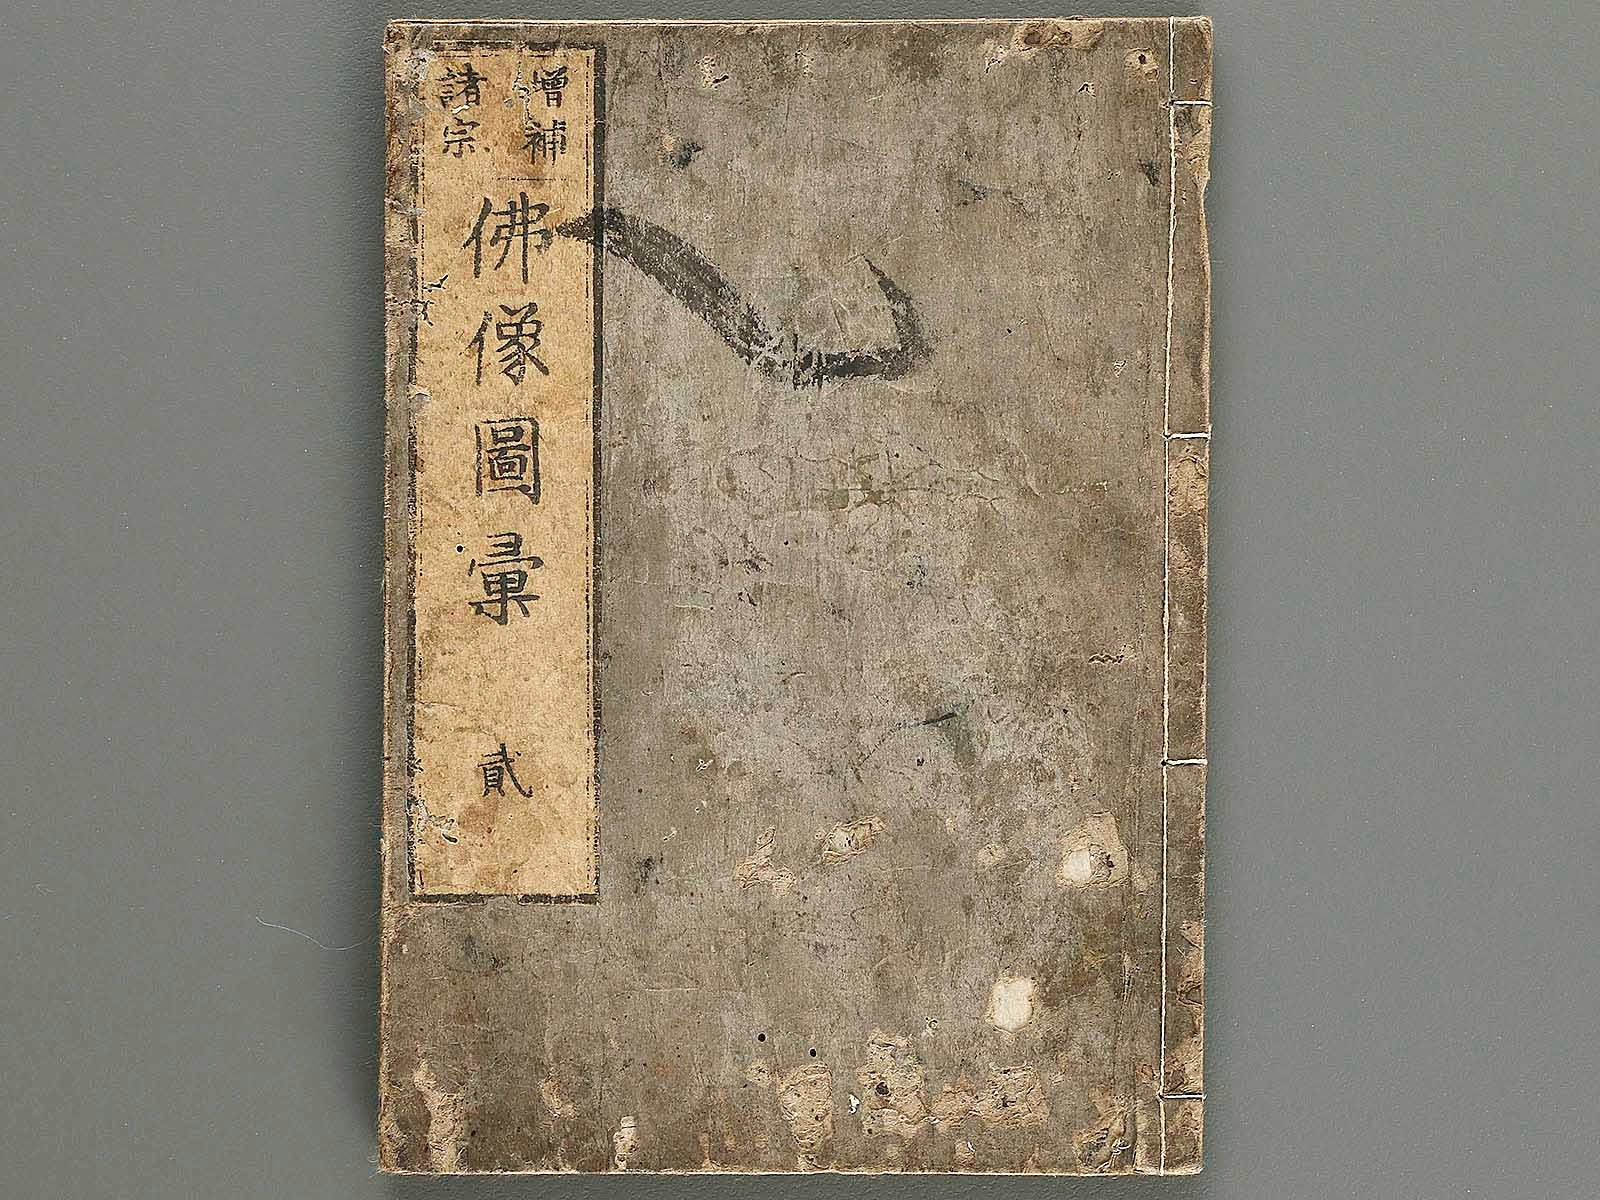 増補
諸宗
佛像圖彙
貳